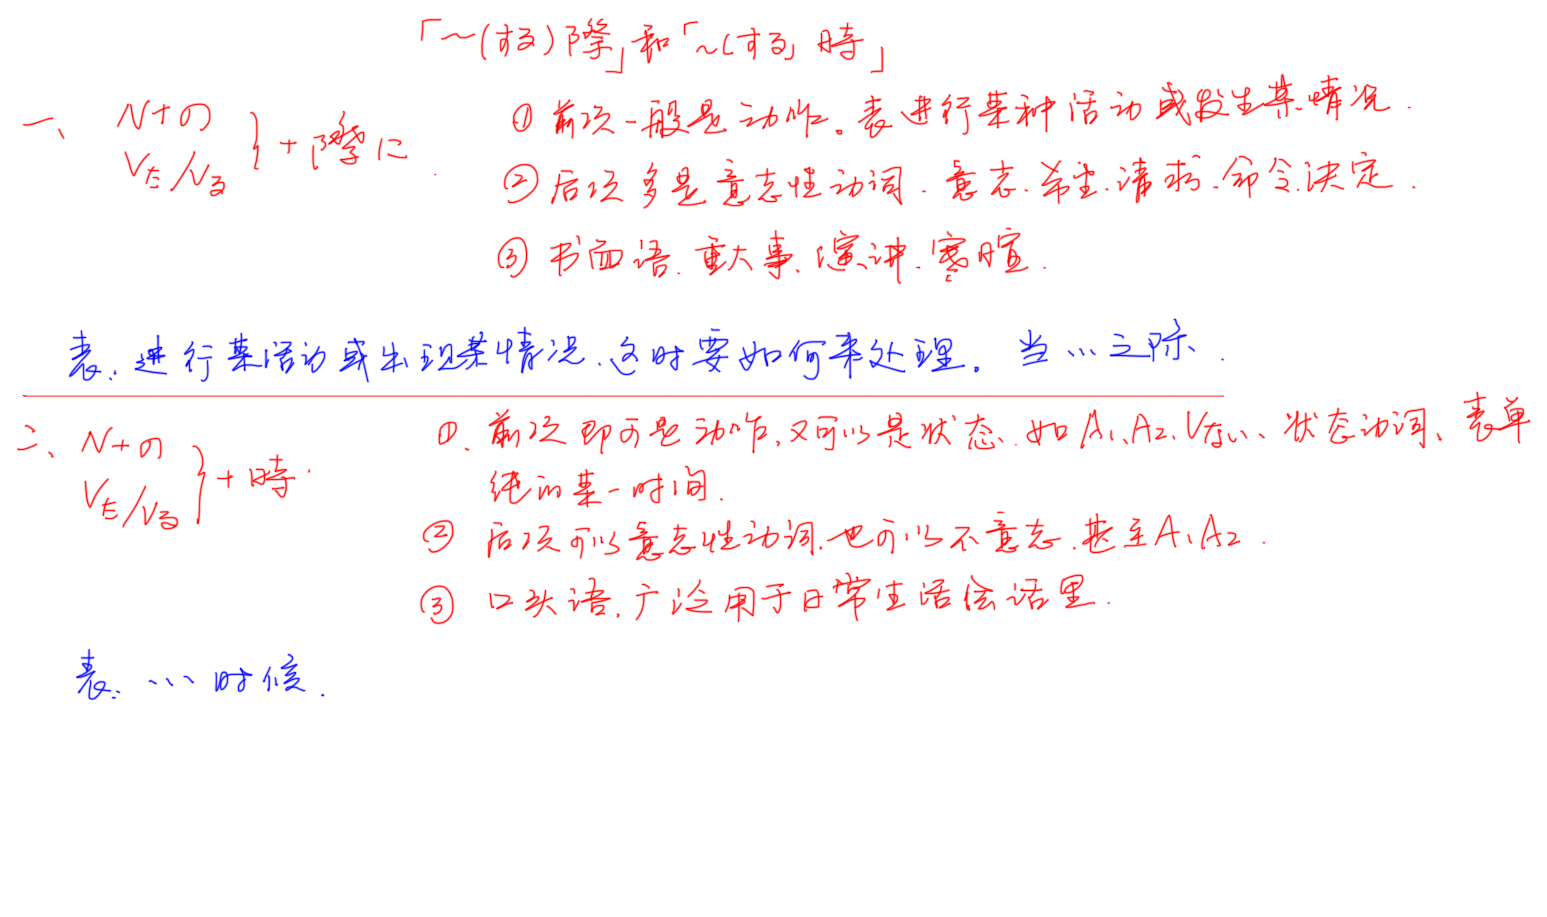 「～(する)際」和「～(する)時」
一、 N+の
Vた/Vる }+際に.
① 前项一般是动作。表进行某种活动或发生某情况.
② 后项多是意志性动词.意志.希望.请求.命令.决定.
③ 书面语.重大事.演讲.寒暄.
表:进行某活动或出现某情况.这时要如何来处理。当…之际.
二、 N+の
Vた/Vる }+時.
①.前项即可是动作,又可以是状态.如A1、A2、Vない、状态动词、表单
纯的某一时间.
② 后项可以意志性动词.也可以不意志.甚至A1A2.
③ 口头语.广泛用于日常生活会话里.
表:…时候.